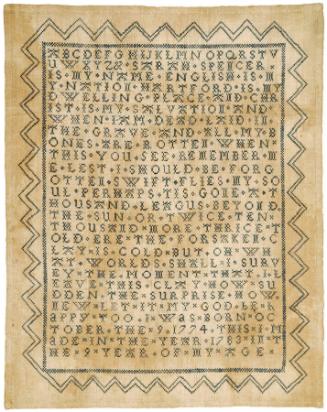 ABCDEFGHIJKLMNOPQRSTV
UWXYZ & SARAH SPENCER
IS MY NAME ENGLISH IS M
Y NATION HARTFORD IS MY
DWELLING PLACE AND CHR
IST IS MY SALVATION AND
WHEN I AM DEAD AND IN
THE GRAVE AND ALL MY B
ONES ARE ROTTEN WHEN
THIS YOU SEE REMEMBER M
E LEST I SHOULD BE FORG
OTTEN SWIFT FLIES MY SO
UL PERHAPS TIS GONE A T
HOUSAND LEAGUS BEYOND
THE SUN OR TWICE TEN
THOUSAND MORE THRICE T
OLD ERE THE FORSAKEN C
LAY IS COLD BUT O WH
AT WORLDS SHALL I SURV
EY THE MOMENT THAT I L
EAVE THIS CLAY HOW SU
DDEN THE SURPRISE HOW
NEW LET IT MY GOD BE h
aPPY TOO I WAS BORN OC
TOBER 9 1774 THIS I M
aDE IN THE YEAR 1783 IN T
HE 9 YEAR OF MY AGE